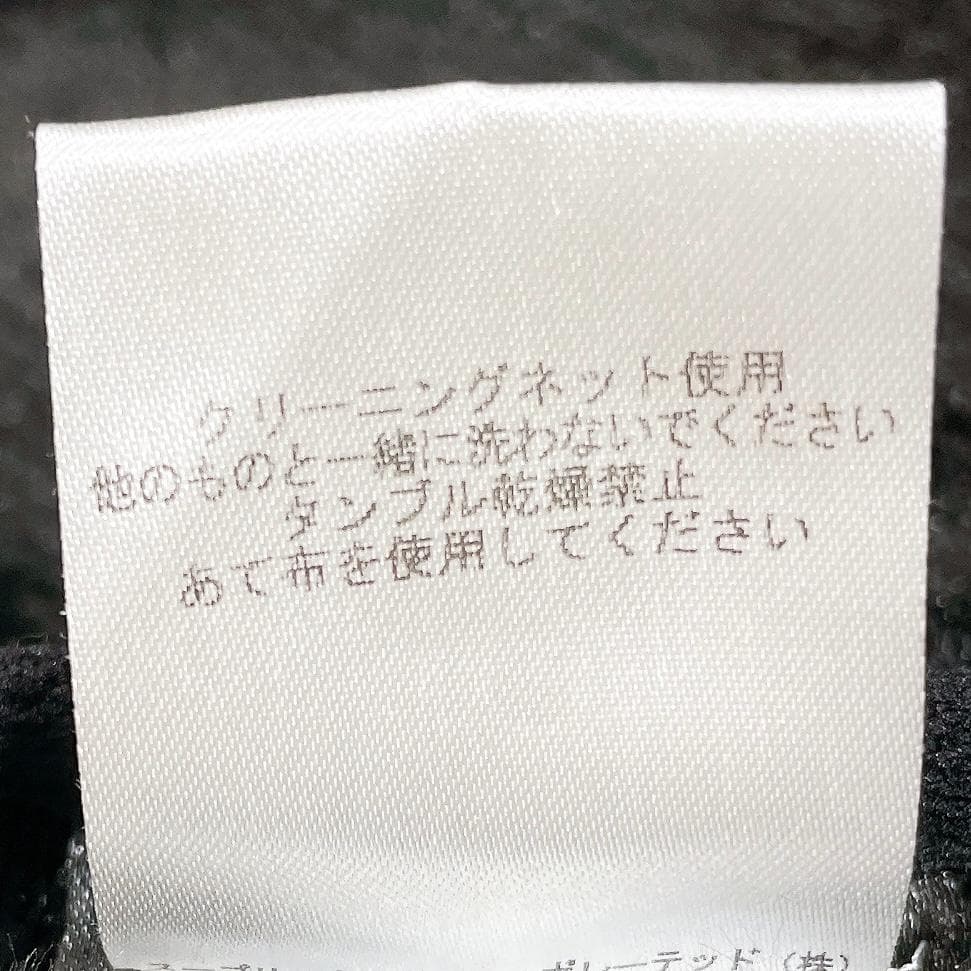 クリーニングネット使用
他のものと一緒に洗わないでください
タンブル乾燥禁止
あて布を使用してください
ポレーテッド（株）